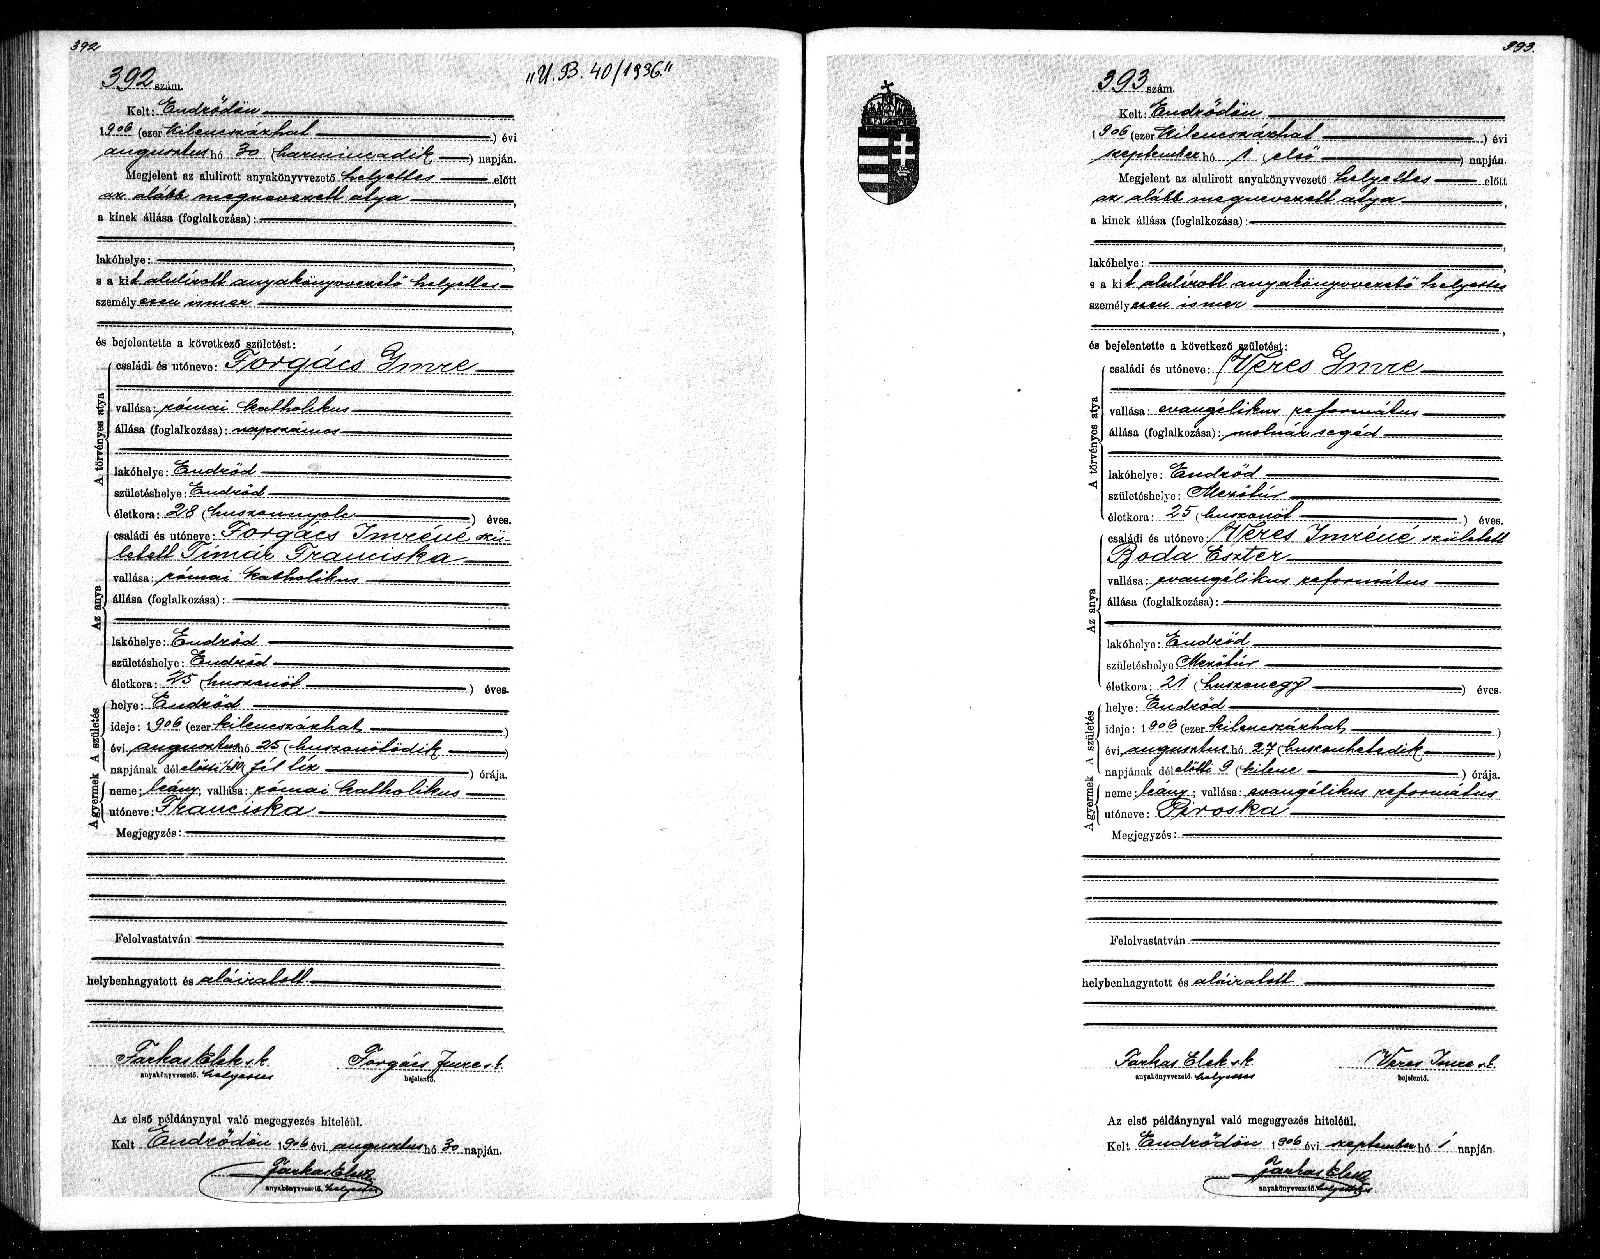 392
392 szám.
„U. B. 40/1936."
Kelt: Endrődön
1906 (ezer kilencszázhat) évi
augusztus hó 30 (harmincadik) napján.
Megjelent az alulirott anyakönyvvezető helyettes előtt
az alább megnevezett atya,
a kinek állása (foglalkozása):
lakóhelye:
s a kit alulírott anyakönyvvezető helyettes
személyesen ismer
és bejelentette a következő születést:
A törvényes atya
családi és utóneve: Forgács Imre
vallása: római katholikus
állása (foglalkozása): napszámos
lakóhelye: Endrőd
születéshelye: Endrőd
életkora: 28 (huszonnyolc) éves.
Az anya
családi és utóneve: Forgács Imréné szü-
letett Timár Franciska
vallása: római katholikus
állása (foglalkozása):
lakóhelye: Endrőd
születéshelye: Endrőd
életkora: 25 (huszonöt) éves.
A születés
helye: Endrőd
ideje: 1906 (ezer kilencszázhat)
évi augusztus hó 25 (huszonötödik)
napjának dél előtti ½10 fél tíz) órája.
A gyermek
neme: leány; vallása: római katholikus
utóneve: Franciska
Megjegyzés:
Felolvastatván
helybenhagyatott és aláiratott
Farkas Elek sk. Forgács Imre s.k.
anyakönyvvezető. helyettes bejelentő.
Az első példánynyal való megegyezés hiteléül.
Kelt Endrődön 1906 évi augusztus hó 30 napján.
Farkas Elek
anyakönyvvezető. helyettes
393.
393 szám.
Kelt: Endrődön
1906 (ezer kilencszázhat) évi
szeptember hó 1 (első) napján.
Megjelent az alulirott anyakönyvvezető helyettes előtt
az alább megnevezett atya,
a kinek állása (foglalkozása):
lakóhelye:
s a kit alulírott anyakönyvvezető helyettes
személyesen ismer
és bejelentette a következő születést:
A törvényes atya
családi és utóneve: Veres Imre
vallása: evangélikus református
állása (foglalkozása): molnár segéd
lakóhelye: Endrőd
születéshelye: Mezőtúr
életkora: 25 (huszonöt) éves.
Az anya
családi és utóneve: Veres Imréné született
Boda Eszter
vallása: evangélikus református
állása (foglalkozása):
lakóhelye: Endrőd
születéshelye Mezőtúr
életkora: 21 (huszonegy) éves.
A születés
helye: Endrőd
ideje: 1906 (ezer kilencszázhat)
évi augusztus hó 27 (huszonhetedik)
napjának dél előtti 9 (kilenc) órája.
A gyermek
neme leány; vallása: evangélikus református
utóneve: Piroska
Megjegyzés:
Felolvastatván
helybenhagyatott és aláiratott
Farkas Elek sk. Veres Imre s.k.
anyakönyvvezető. helyettes bejelentő.
Az első példánynyal való megegyezés hiteléül.
Kelt Endrődön 1906 évi szeptember hó 1 napján
Farkas Elek
anyakönyvvezető. helyettes